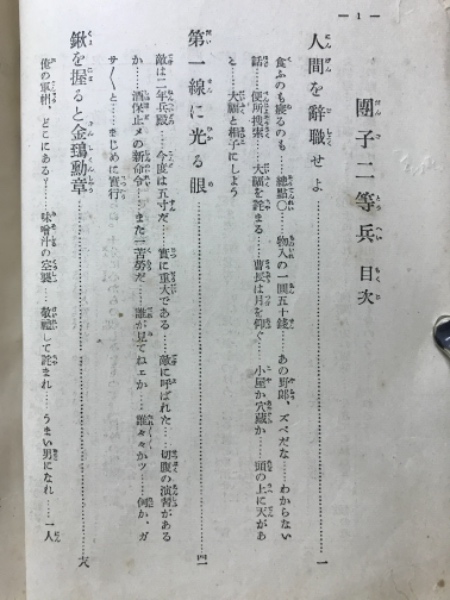 — 1 —
團子二等兵 目次
人間を辭職せよ……一
食ふのも寢るのも……總點〇……物入の一圓五十錢……あの野郎、ズベだな……わからない
話……便所捜索……大福を詫まる……曹長は月を仰ぐ……小屋か穴藏か……頭の上に天があ
と……大福と相子にしよう
第一線に光る眼……四一
敵は二年兵殿……今度は五寸だ……實に重大である……敵に呼ばれた……切腹の演習がある
か……酒保止メの新命令……また一苦勞だ……誰か見てねェか……誰々々かッ……何か、ガ
サ〱と……まじめに實行
鍬を握ると金鵄勳章……六
俺の軍帽、どこにある？……味噌汁の空襲……敬禮して詫まれ……うまい男になれ……一人